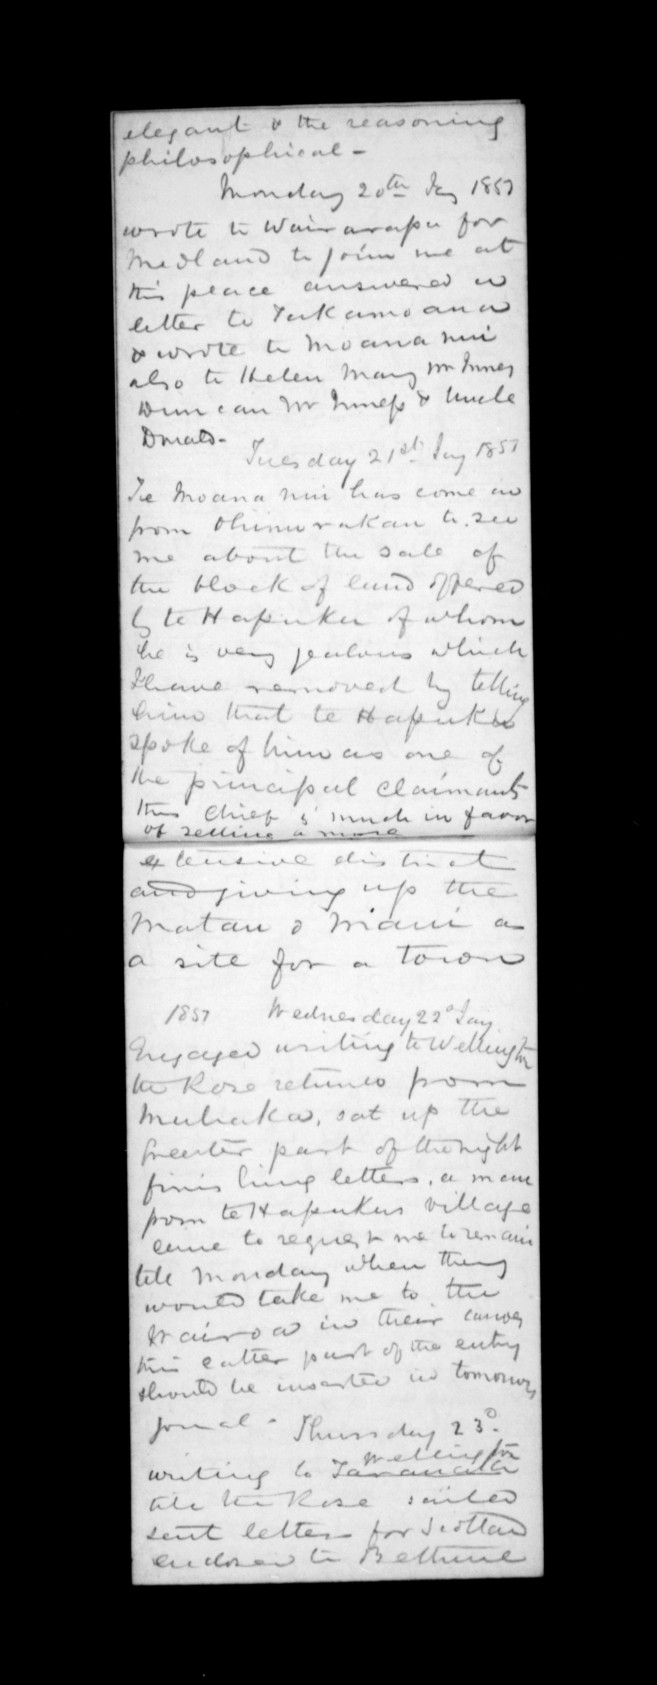 elegant & the reasoning
philosophical -
Monday 20th Jay 1851
wrote to Wairarapa for
Medland to join me at
this place answered a
letter to Tukamoana
& wrote to Moananui
also to Helen Mary Mr Innes
Duncan Mr Inness & Uncle
Donald -
Tuesday 21st Jay 1851
Te Moananui has come in
from to see
me about the sale of
the block of land offered
by te Hapuku of whom
he is very jealous which
I have removed by telling
him that te Hapuku
spoke of him as one of
the principal claimants
this chief is much in favor
of selling a more
extensive district
and giving up the
Matau o Maui as
a site for a town
1851 Wednesday 22d Jay
Engaged writing to Wellington
the Rose returned from
Muhaka, sat up the
greater part of the night
finishing letters, a man
from te Hapukus village
came to request me to remain
till Monday when they
would take me to the
Wairoa in their canoes
this latter part of the entry
should be inserted in tomorrows
jornal - Thursday 23d.
Wellington
writing to Taranaki
till the Rose sailed
sent letters for Scotland
enclosed to Bethune